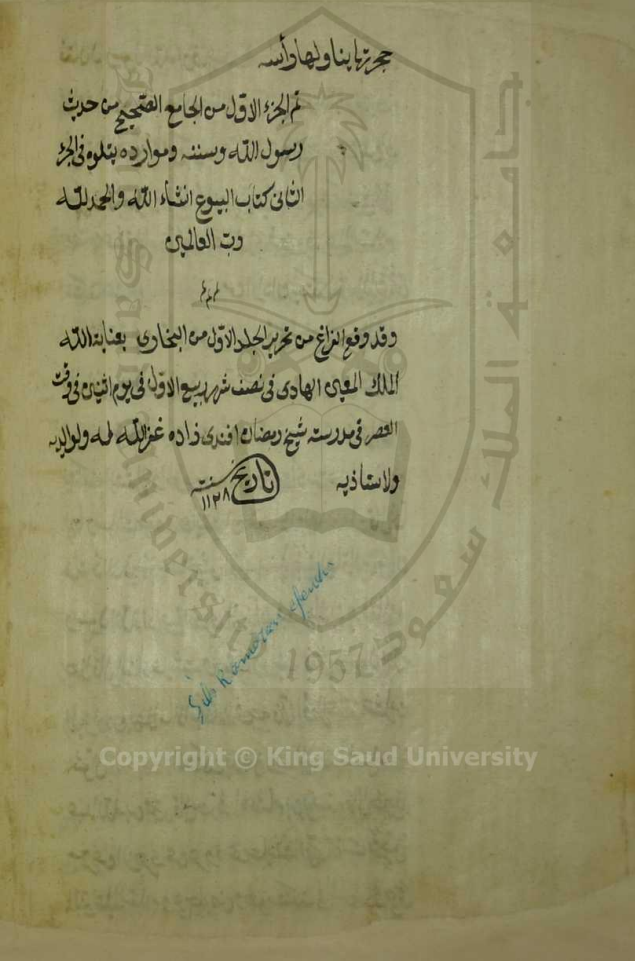 حجرتها يناولها رأسه
تم الجزء الاول من الجامع الصحيح من حديث
رسول الله وسننه وموارده يتلوه فى الجزء
الثانى كتاب البيوع انشاء الله والحمد لله
رب العالمين
م م م
وقد وقع الفراغ من تحرير الجلد الاول من البخارى بعناية الله
الملك المعين الهادى فى نصف شهر ربيع الاول فى يوم اثنين فى وقت
العصر فى مدرسته شيخ رمضان افندى زاده غفر الله له ولوالديه
ولاستاذيه تاريخ سنته ١١٢٨
جامعة الملك سعود
King Saud University
1957
Copyright © King Saud University